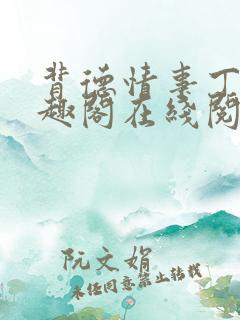 背德情事丁
趣阁在线阅
阮文娟
未经同意禁止转载